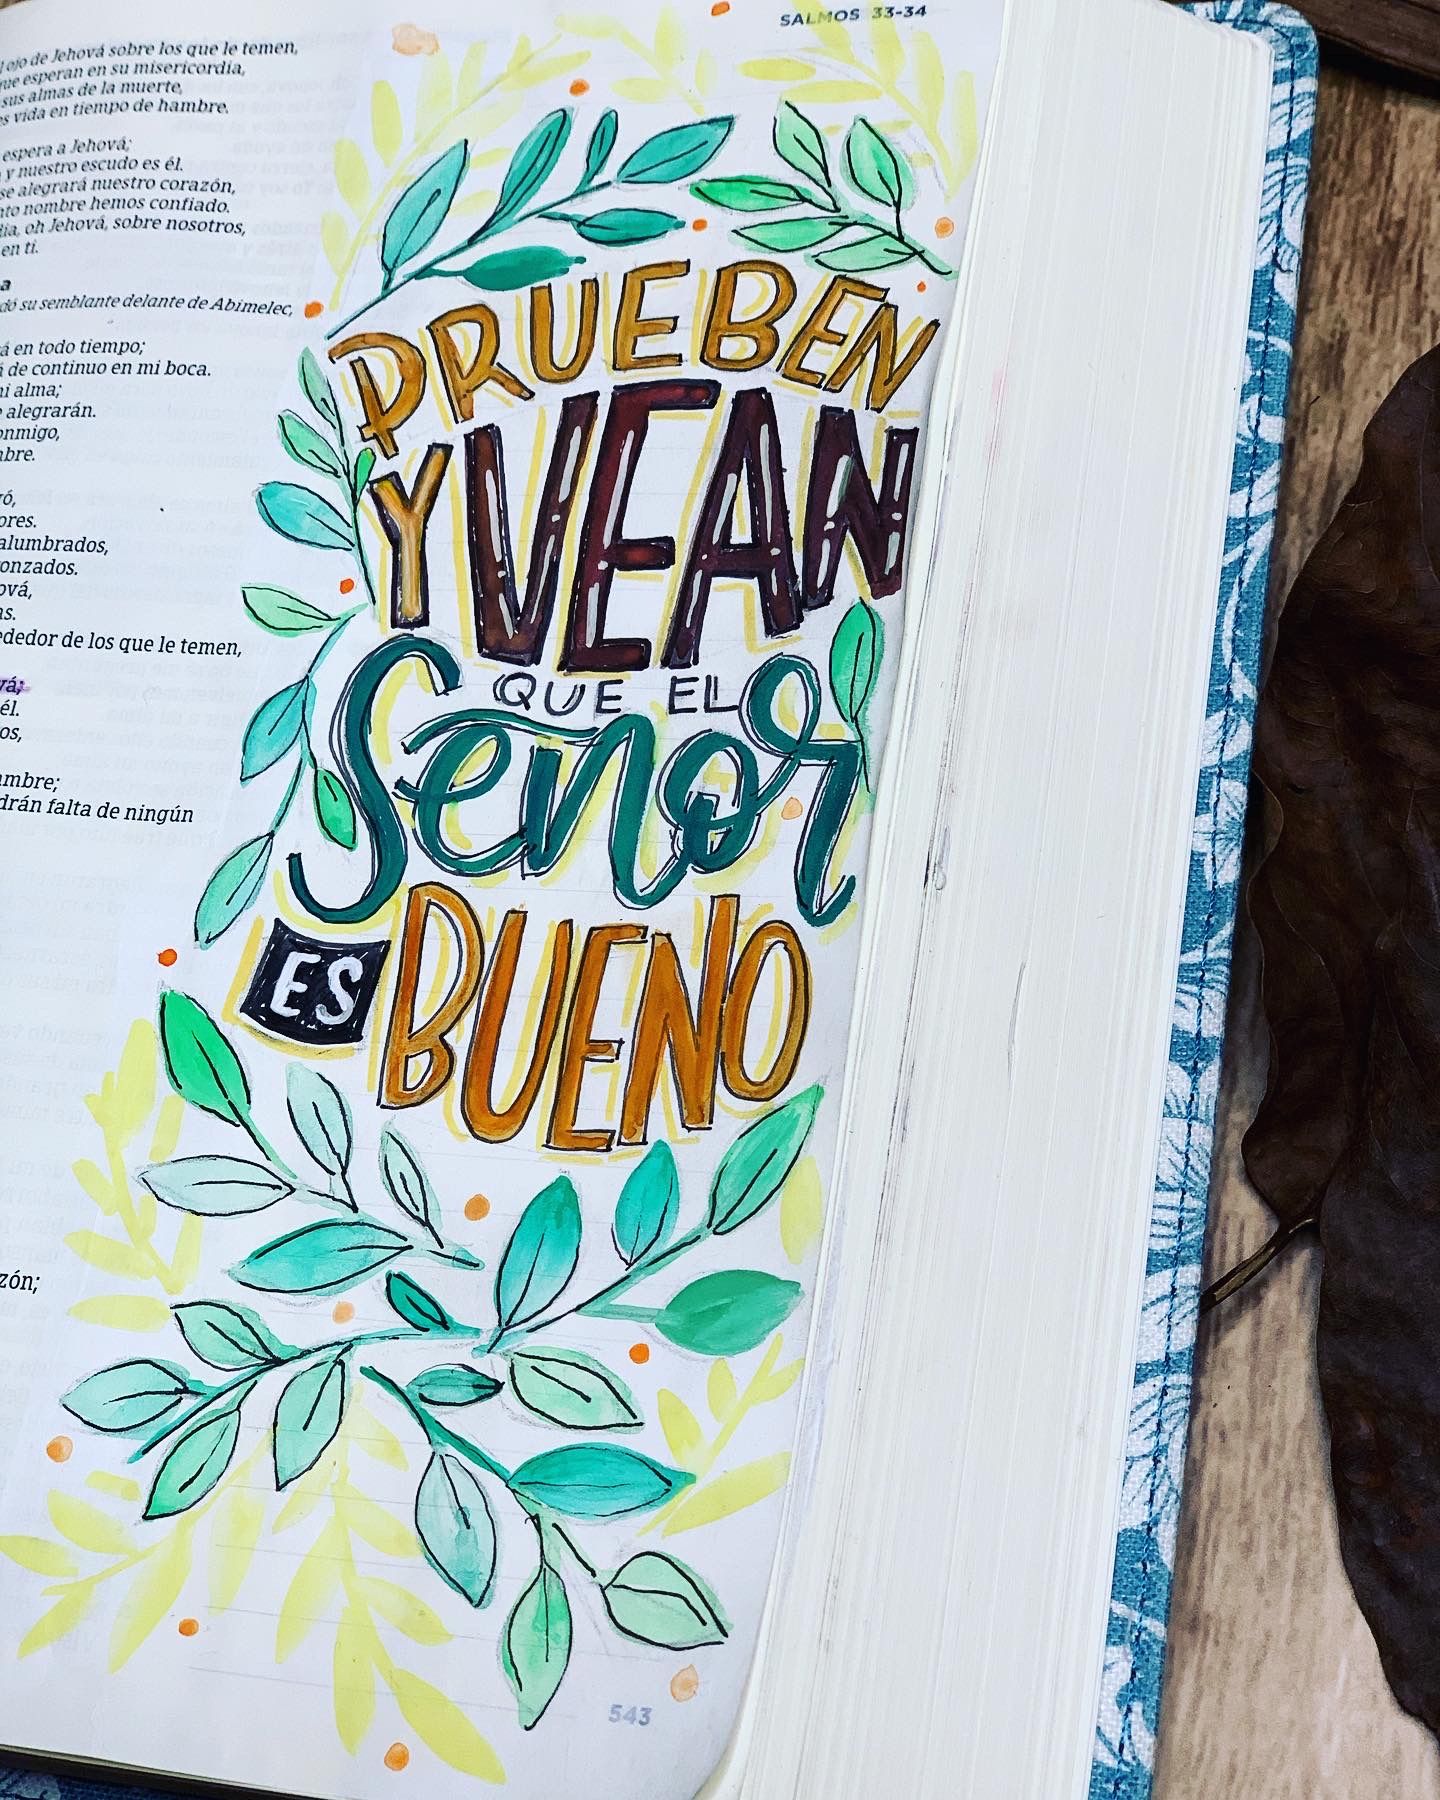 SALMOS 33-34
ojo de Jehová sobre los que le temen,
que esperan en su misericordia,
sus almas de la muerte,
vida en tiempo de hambre.
espera a Jehová;
y nuestro escudo es él.
se alegrará nuestro corazón,
nombre hemos confiado.
oh Jehová, sobre nosotros,
en ti.
su semblante delante de Abimelec,
en todo tiempo;
de continuo en mi boca.
alma;
alegrarán.
alumbrados,
de los que le temen,
él.
falta de ningún
PRUEBEN
Y VEAN
QUE EL
Senor
ES BUENO
543